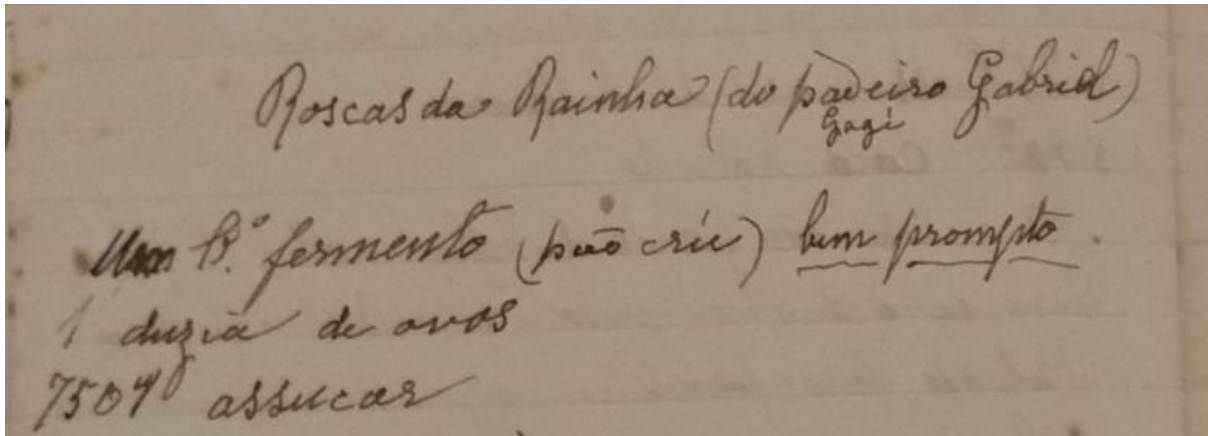 Roscas da Rainha (do padeiro Gabriel)
Gagé
Um K.º fermento (pão crú) bem prompto.
1 duzia de ovos
750 gr assucar